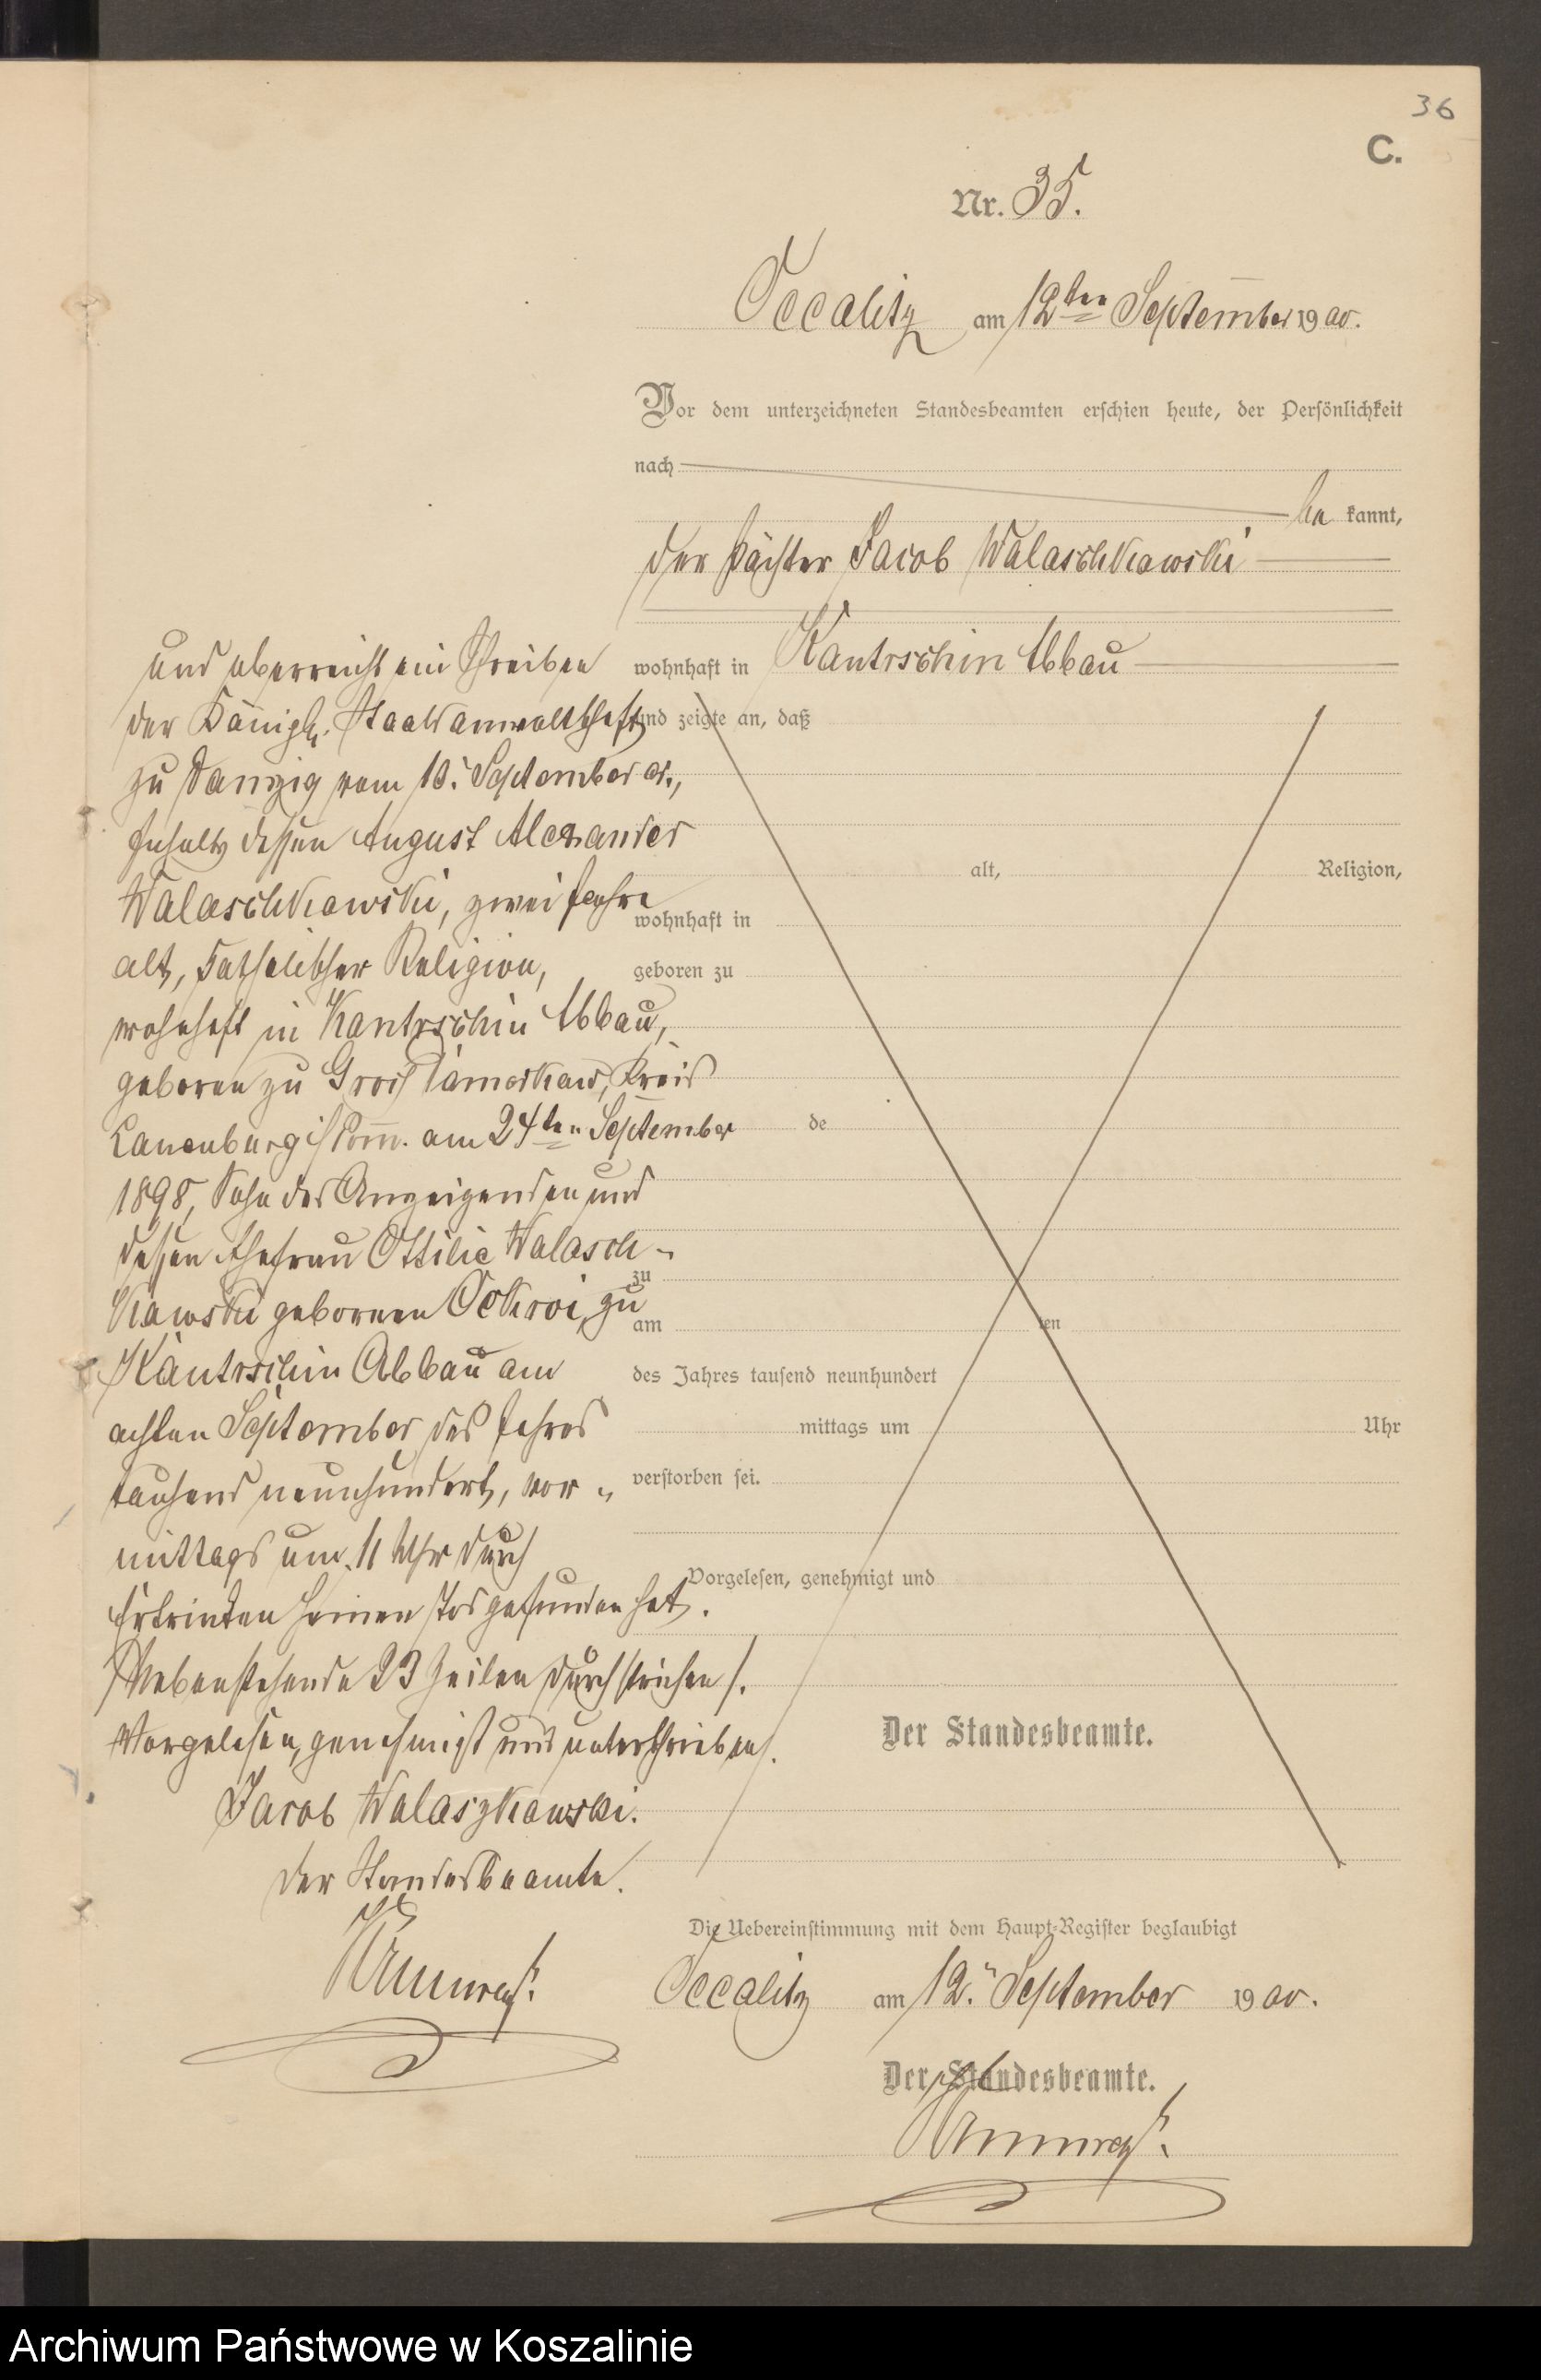 36
C.
Nr. 35.
Occalitz am 12ten September 1900.
Vor dem unterzeichneten Standesbeamten erschien heute, der Persönlichkeit
nach
be kannt,
der Pächter Jacob Walaschkowski
wohnhaft in Kantrschin Abbau
und zeigte an, daß
alt, Religion,
wohnhaft in
geboren zu
de
zu
am ten
des Jahres tausend neunhundert
mittags um Uhr
verstorben sei.
Vorgelesen, genehmigt und
Der Standesbeamte.
und überreicht ein Schreiben
der Königl. Staatsanwaltschaft
zu Danzig vom 10. September cr.,
Inhalts dessen August Alexander
Walaschkowski, zwei Jahre
alt, katholischer Religion,
wohnhaft in Kantrschin Abbau,
geboren zu Groß Damerkow, Kreis
Lauenburg i/Pom. am 24ten September
1898, Sohn des Anzeigenden und
dessen Ehefrau Ottilie Walasch-
kowski geborenen Ockroi, zu
Kantrschin Abbau am
achten September des Jahres
tausend neunhundert, vor-
mittags um 11 Uhr durch
Ertrinken seinen Tod gefunden hat.
/Nebenstehende 23 Zeilen durchstrichen/.
Vorgelesen, genehmigt und unterschrieben.
Jacob Walaszkowski.
Der Standesbeamte.
Die Uebereinstimmung mit dem Haupt-Register beglaubigt
Occalitz am 12. September 1900.
Der Standesbeamte.
Archiwum Państwowe w Koszalinie